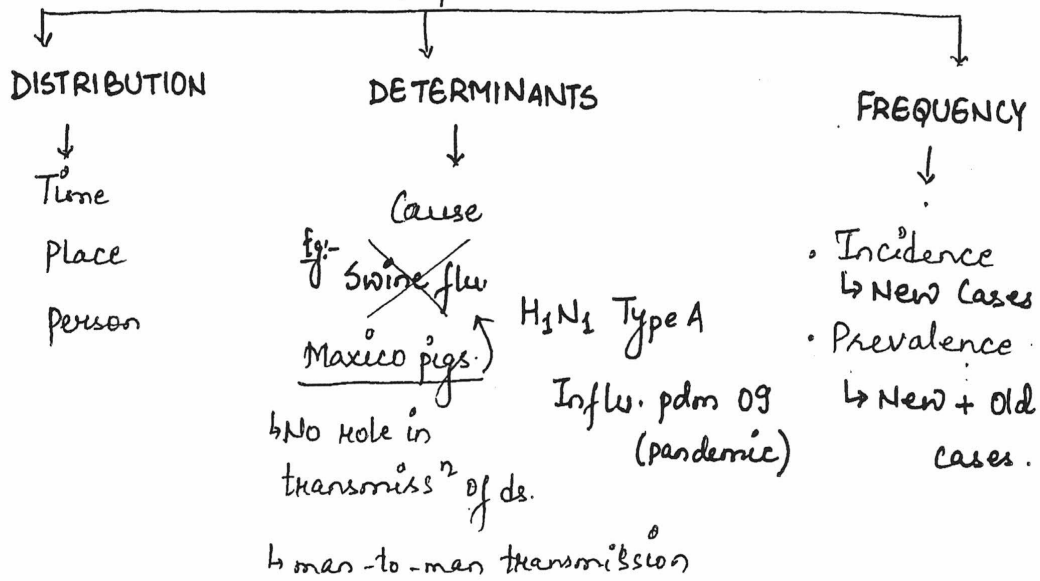 DISTRIBUTION
Time
Place
Person
DETERMINANTS
Cause
Eg:-
Swine flu
Maxico pigs.
↳No role in
transmissⁿ of ds.
↳ man-to-man transmission
H1N1 Type A
Influ. pdm 09
(pandemic)
FREQUENCY
• Incidence
↳ New Cases
• Prevalence
↳ New + Old
cases.